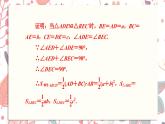 证明：当△ADE≌△BEC时，设BE=AD=a，BC=
AE=b，CE=DE=c，∠ADE=∠BEC.
∵∠AED+∠ADE=90°，
∴∠AED+∠BEC=90°.
∴∠DEC=90°.
∵S梯形ABCD=1/2(AD+BC)·AB=1/2(a+b)²，S△ADE=
S△BEC=1/2ab，S△DEC=1/2c²，